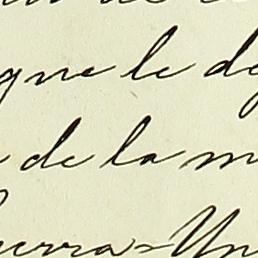 que le de
de la m
uerra=Un